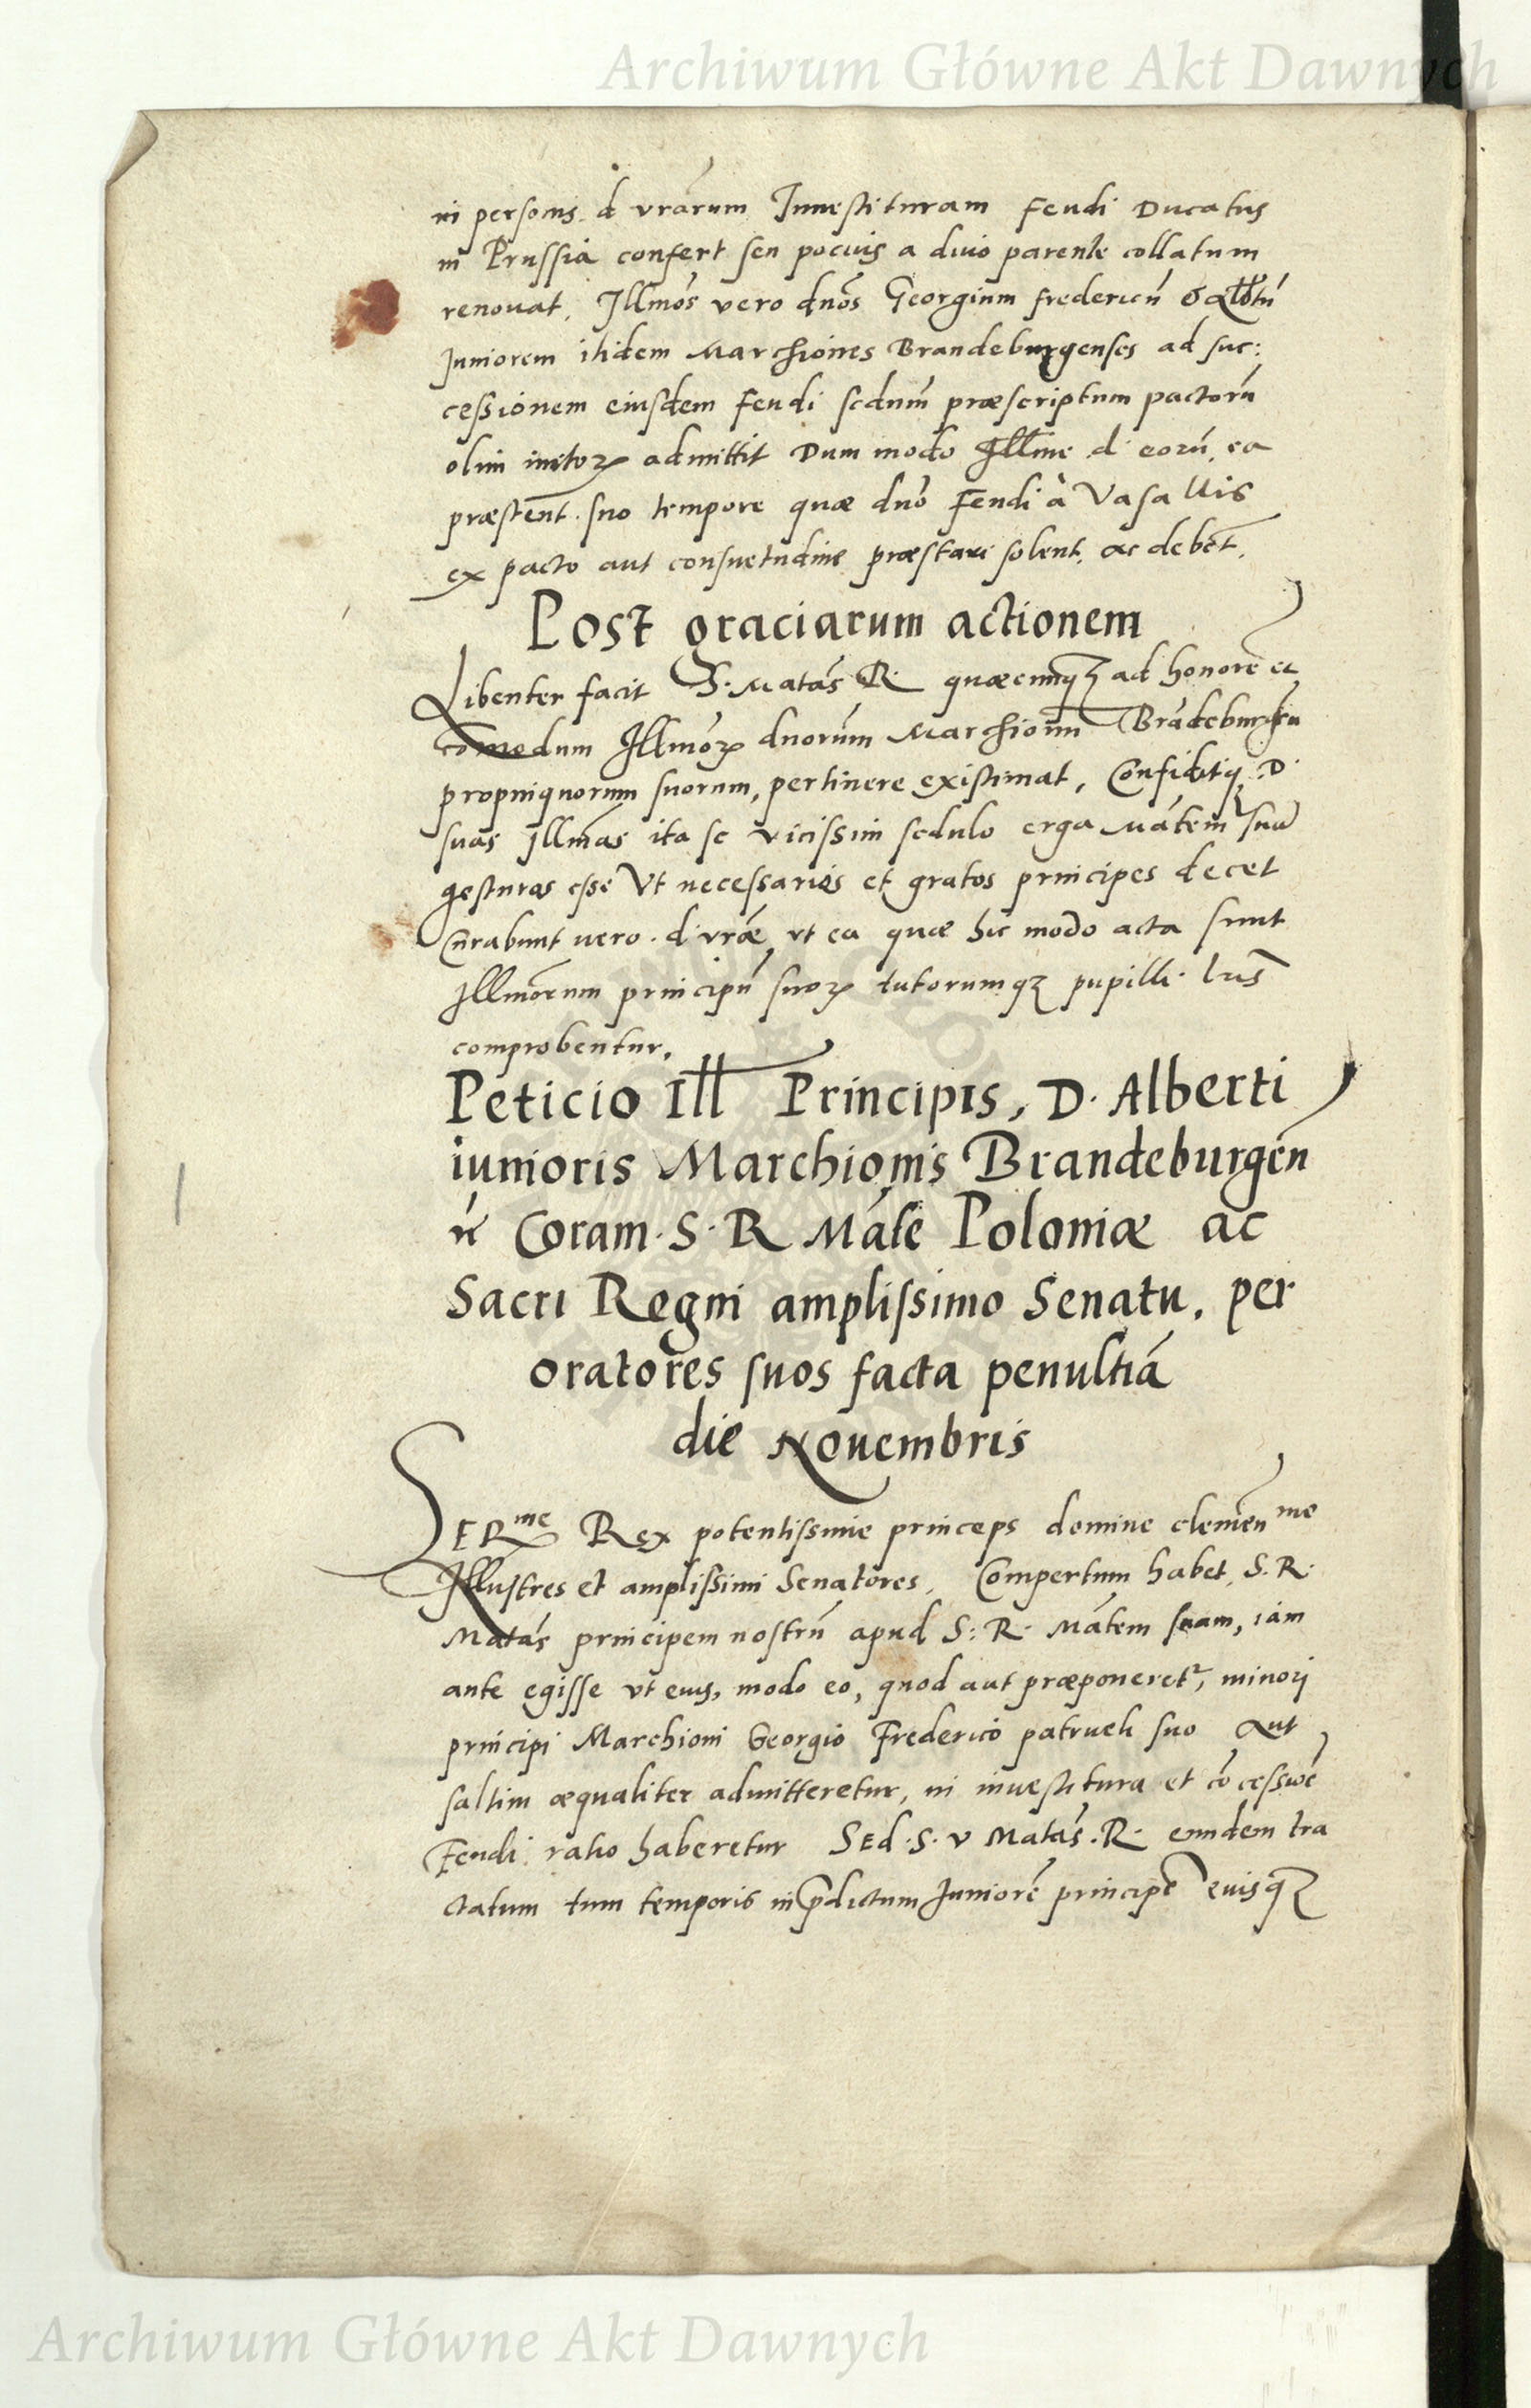 Archiwum Główne Akt Dawnych
in personis d vrãrum Inuestituram Feudi Ducatus
in Prussia confert seu pocius a diuo parente collatum
renouat. Illmõs vero dnõs Georgium Fredericũ
Juniorem itidem Marchiones Brandeburgenses ad suc:
cessionem eiusdem Feudi scdũm præscriptum pactorũ
olim initoꝝ admittit Dum modo Illme d. eorũ. ea
præstent. suo tempore quæ dnõ Feudi à Vasallis
ex pacto aut consuetudine præstari solent. ac debẽt.
Post graciarum actionem
Libenter facit S. Matãs R. quæcunqꝫ ad honorẽ et
comodum Illmõꝝ dnorũm Marchionũ Brãdeburgẽn
propinquorum suorum, pertinere existimat, Confiditqꝫ D.
suas Illmãs ita se vicissim sedulo erga Mãtem suã
gesturas esse Vt necessarios et gratos principes decet
Curabunt uero. d. vræ̃ vt ea quæ hic modo acta sunt
Illmõrum principũ suoꝝ tutorumqꝫ pupilli lrĩs
comprobentur.
Peticio Ill Principis, D. Alberti
iunioris Marchionis Brandeburgẽn
ñ Coram. S. R Mãte Poloniæ ac
Sacri Regni amplissimo Senatu, per
oratores suos facta penultiã
die Nouembris
SERme Rex potentissime princeps domine clemẽn me
Illustres et amplissimi Senatores, Compertum habet, S. R.
Matãs principem nostrũ apud S: R. Mãtem suam, iam
ante egisse vt eius, modo eo, quod aut præponeretr, minori
principi Marchioni Georgio Frederico patrueli suo aut
saltim æqualiter admitteretur, in inuestitura et cõcessiõe
Feudi ratio haberetur Sed. S. v Matãs. R. eundem tra
ctatum tum temporis in p̃dictum Juniorẽ principẽ eiusqꝫ
Archiwum Główne Akt Dawnych